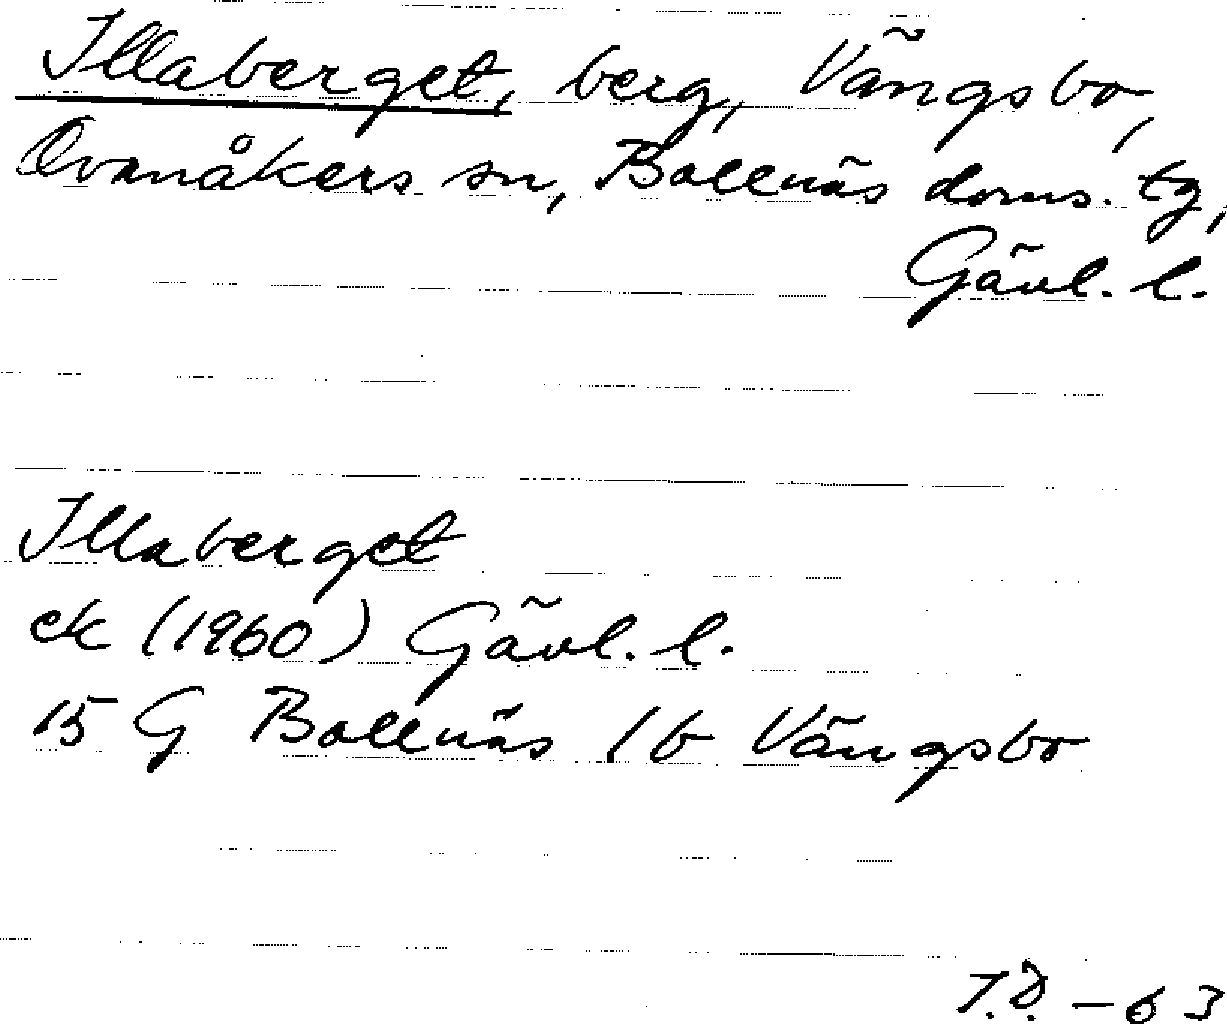 Illaberget, berg, Vängsbo,
Ovanåkers sn, Bollnäs doms. tg,
Gävl. l.
Illaberget
ek (1960) Gävl. l.
15 G Bollnäs 1 b Vängsbo
T.D. - 63